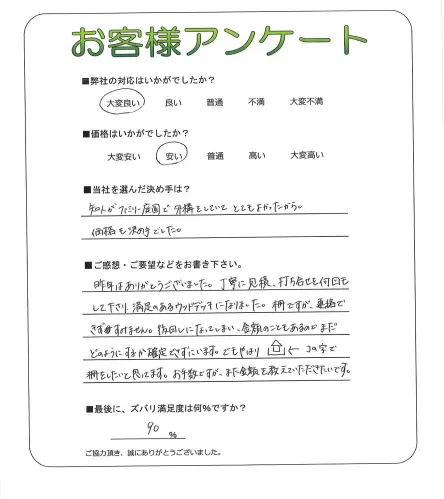 お客様アンケート
■弊社の対応はいかがでしたか？
大変良い 良い 普通 不満 大変不満
■価格はいかがでしたか？
大変安い 安い 普通 高い 大変高い
■当社を選んだ決め手は？
知人がファミリー庭園で外構をしていて とてもよかったから。
価格も決め手でした。
■ご感想・ご要望などをお書き下さい。
昨年はありがとうございました。丁寧に見積、打ち合せも何回も
して下さり、満足のあるウッドデッキになりました。柵ですが、連絡で
きずすみません。後回しになってしまい、金額のこともあるので まだ
どのようにするか確定できずにいます。でもやはり ← コの字で
柵をしたいと思ってます。お手数ですが、また金額を教えていただきたいです。
■最後に、ズバリ満足度は何%ですか？
90 %
ご協力頂き、誠にありがとうございました。